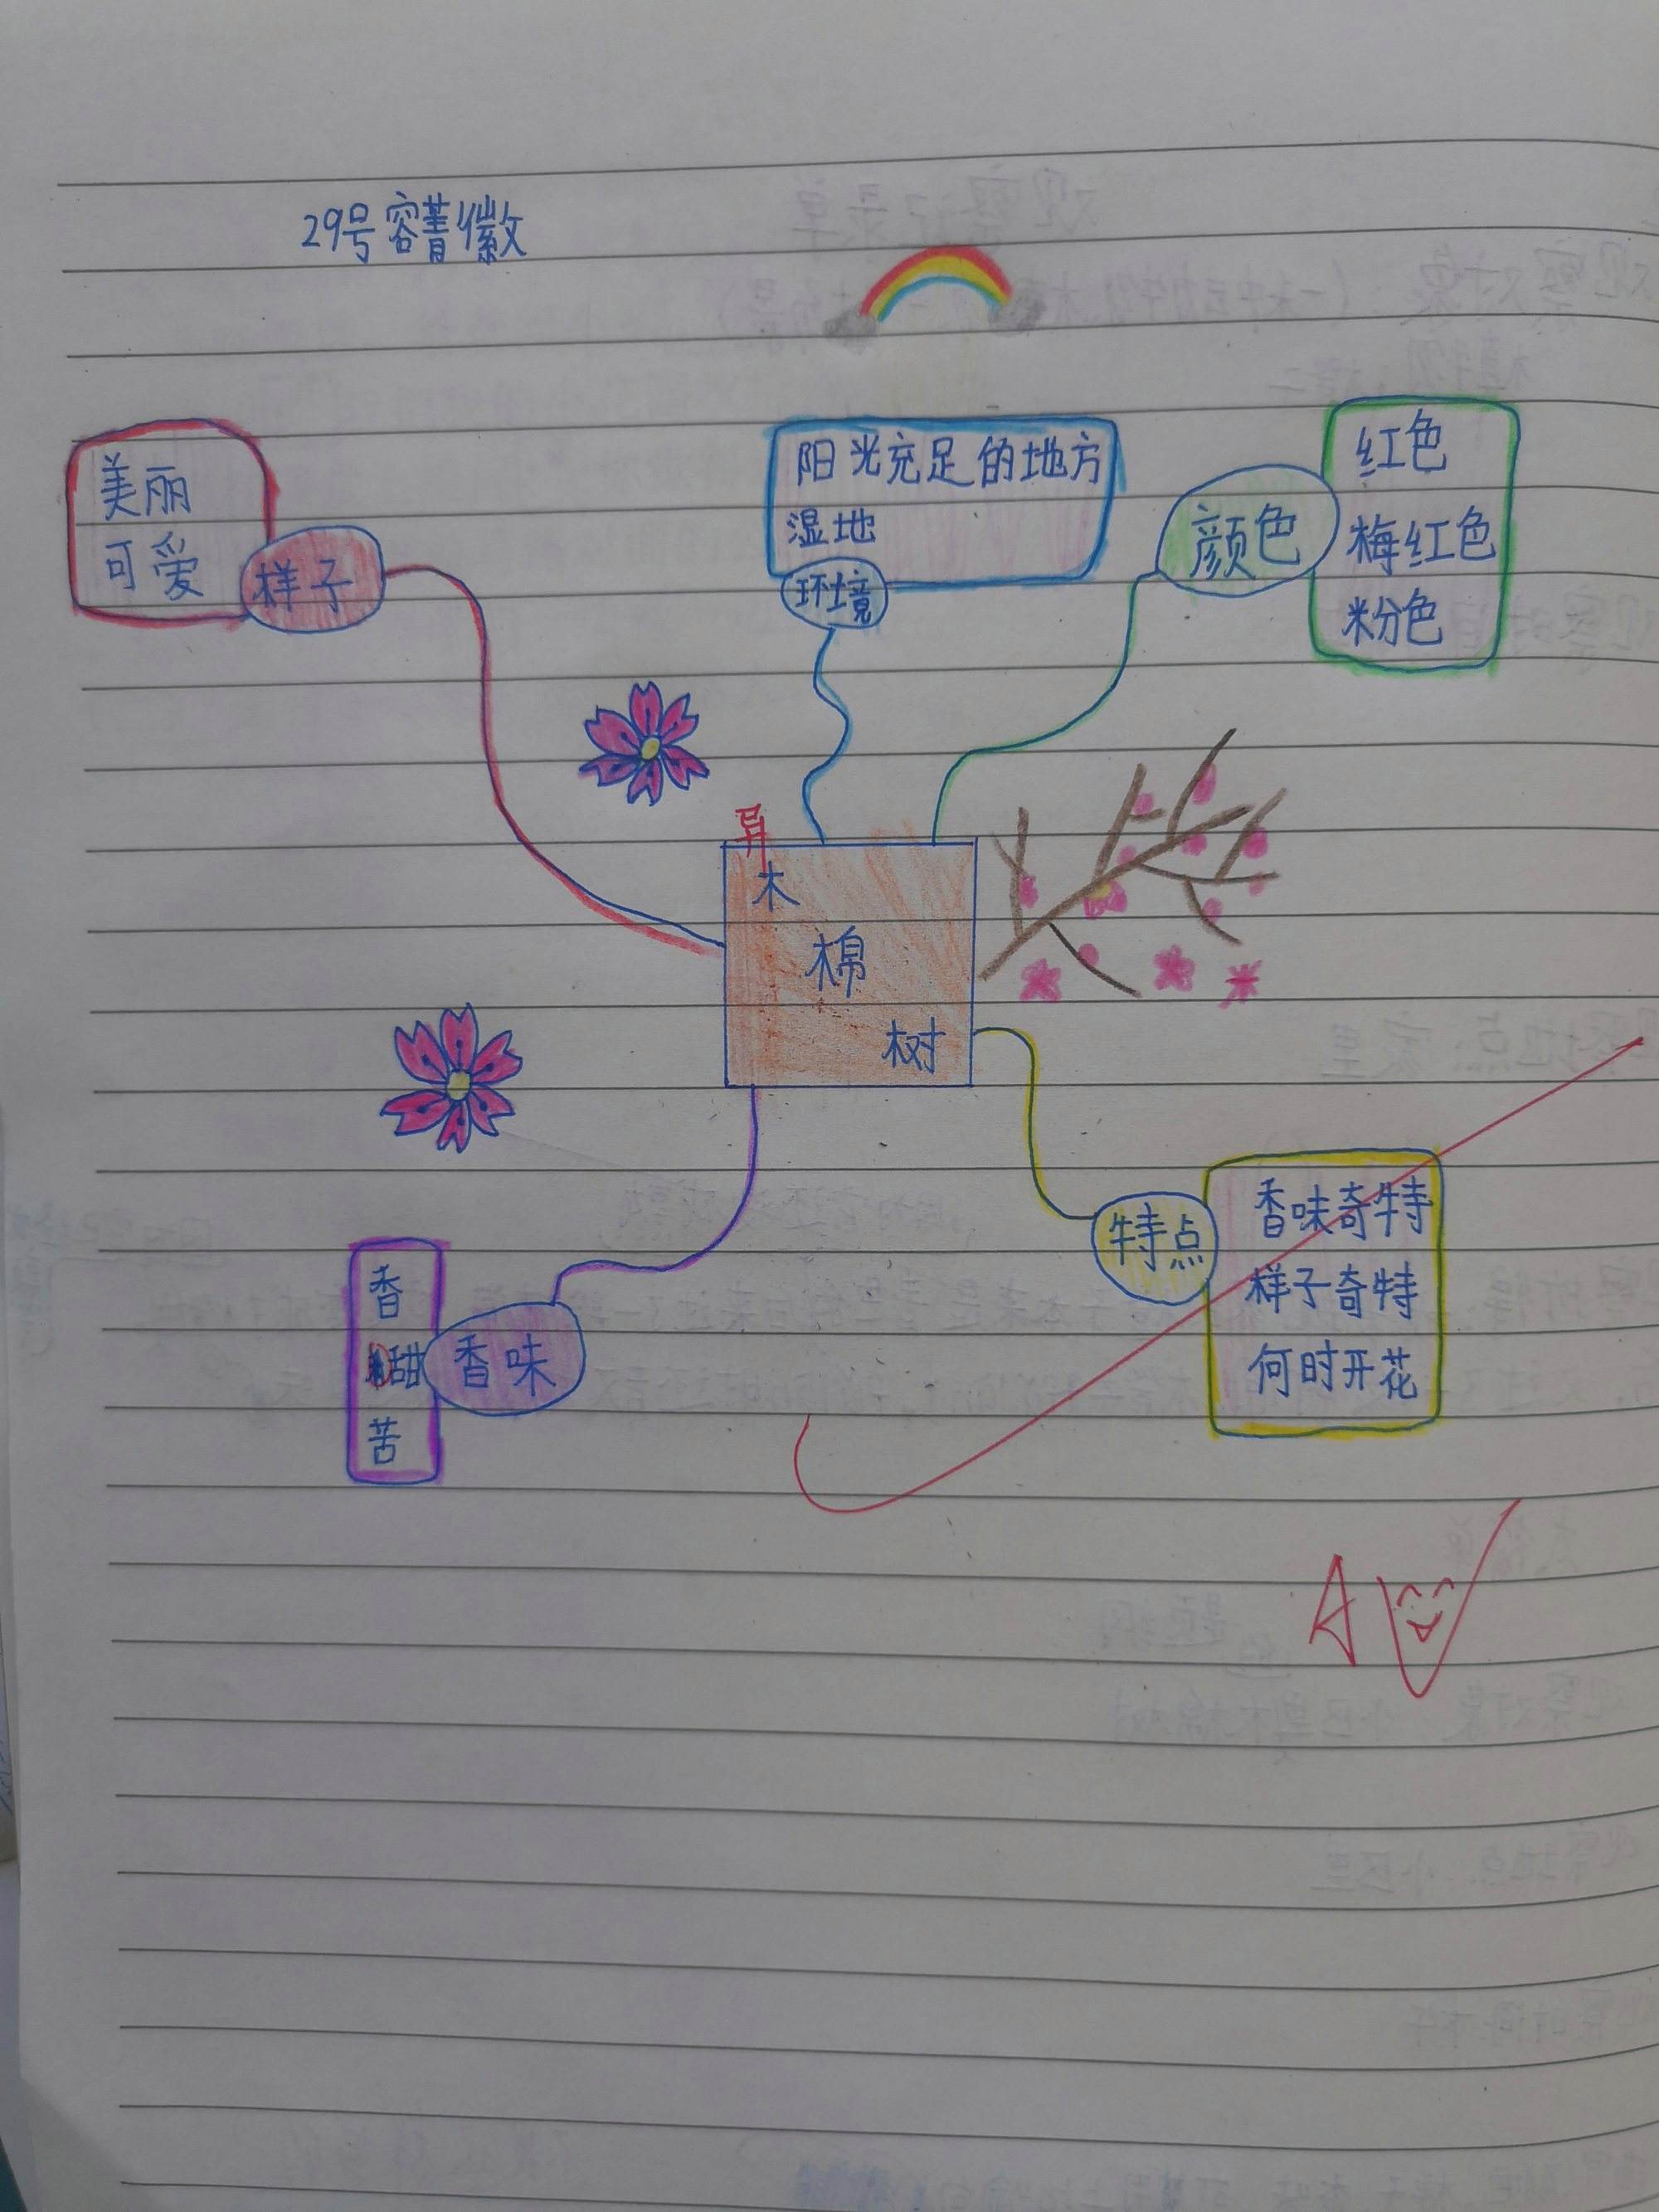 29号容菁徽
美丽
可爱
样子
阳光充足的地方
湿地
环境
颜色
红色
梅红色
粉色
异
木
棉
树
特点
香味奇特
样子奇特
何时开花
香
甜
苦
香味
A